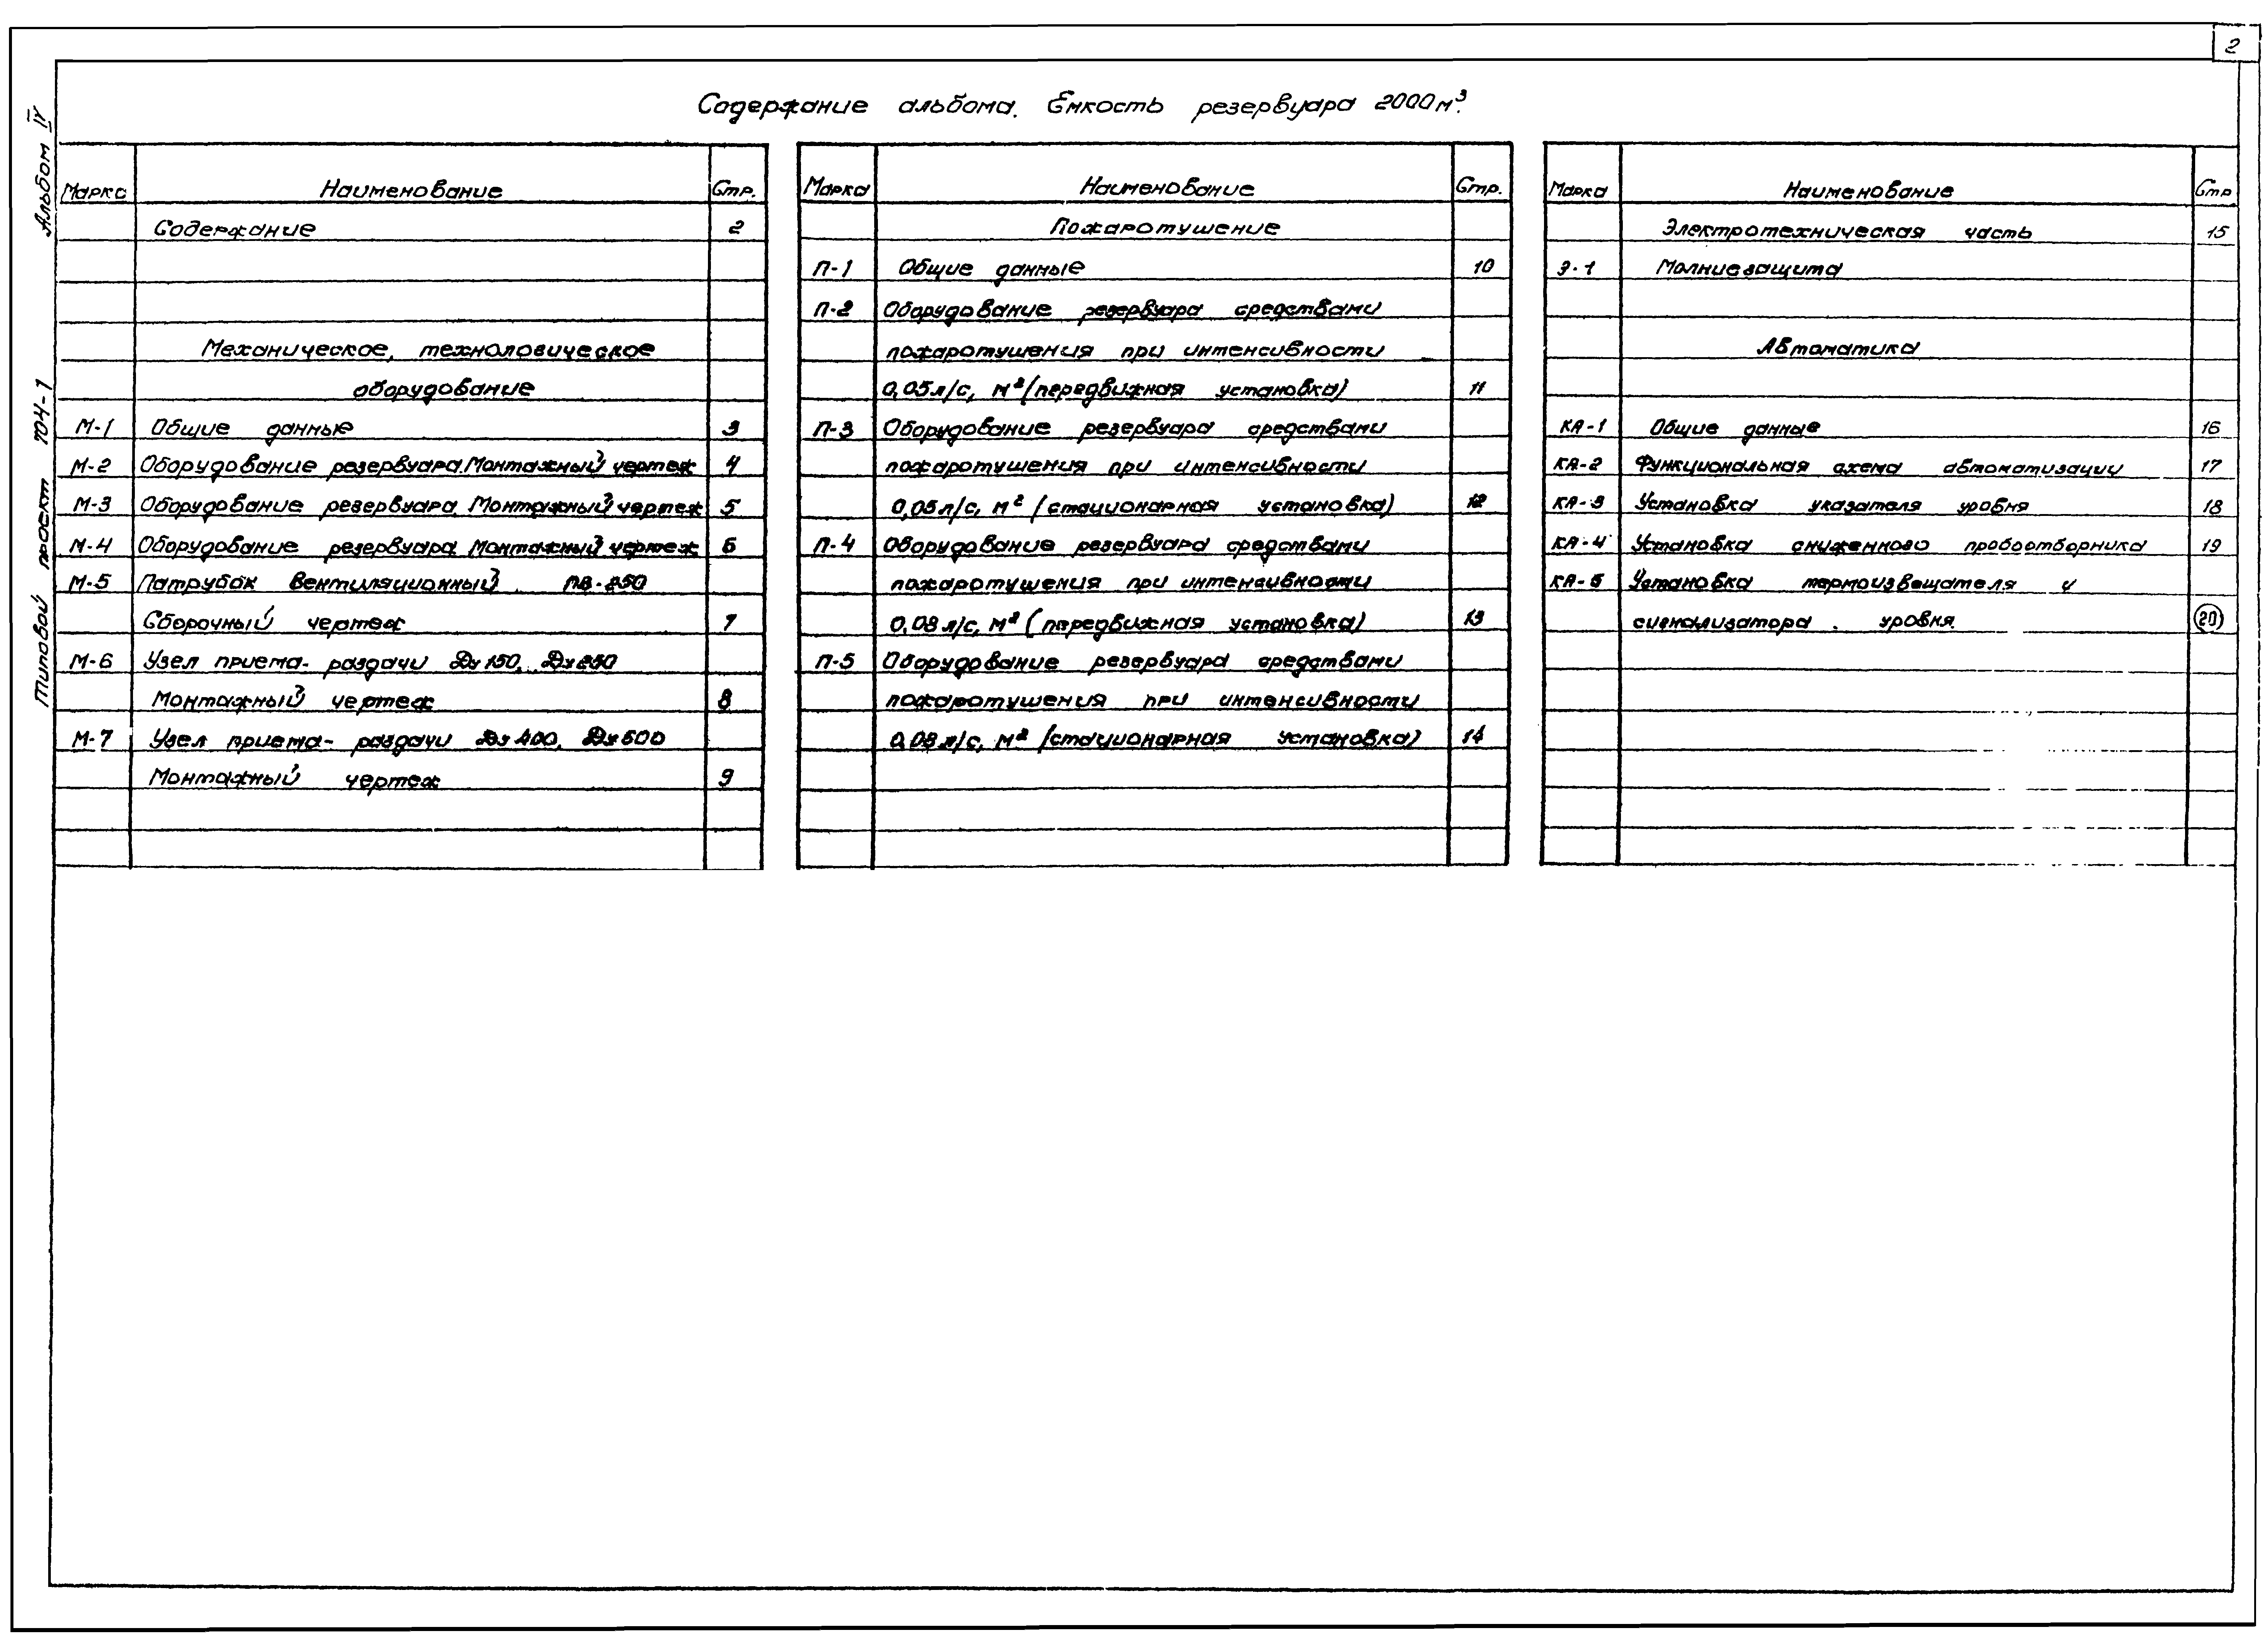 2
Альбом IV
Типовой проект 704-1
Содержание альбома. Емкость резервуара 2000м³.
Марка Наименование Стр.
Содержание 2
Механическое, технологическое
оборудование
М-1 Общие данные 3
М-2 Оборудование резервуара. Монтажный чертеж 4
М-3 Оборудование резервуара. Монтажный чертеж 5
М-4 Оборудование резервуара. Монтажный чертеж 6
М-5 Патрубок вентиляционный. ПВ-250
Сборочный чертеж 7
М-6 Узел приема-раздачи Ду 150, Ду 250
Монтажный чертеж 8
М-7 Узел приема-раздачи Ду 400, Ду 500
Монтажный чертеж 9
Марка Наименование Стр.
Пожаротушение
П-1 Общие данные 10
П-2 Оборудование резервуара средствами
пожаротушения при интенсивности
0,05л/с, м² (передвижная установка) 11
П-3 Оборудование резервуара средствами
пожаротушения при интенсивности
0,05л/с, м² (стационарная установка) 12
П-4 Оборудование резервуара средствами
пожаротушения при интенсивности
0,08л/с, м² (передвижная установка) 13
П-5 Оборудование резервуара средствами
пожаротушения при интенсивности
0,08л/с, м² (стационарная установка) 14
Марка Наименование Стр
Электротехническая часть 15
Э-1 Молниезащита
Автоматика
КА-1 Общие данные 16
КА-2 Функциональная схема автоматизации 17
КА-3 Установка указателя уровня 18
КА-4 Установка сниженного пробоотборника 19
КА-5 Установка термоизвещателя и
сигнализатора уровня. 20